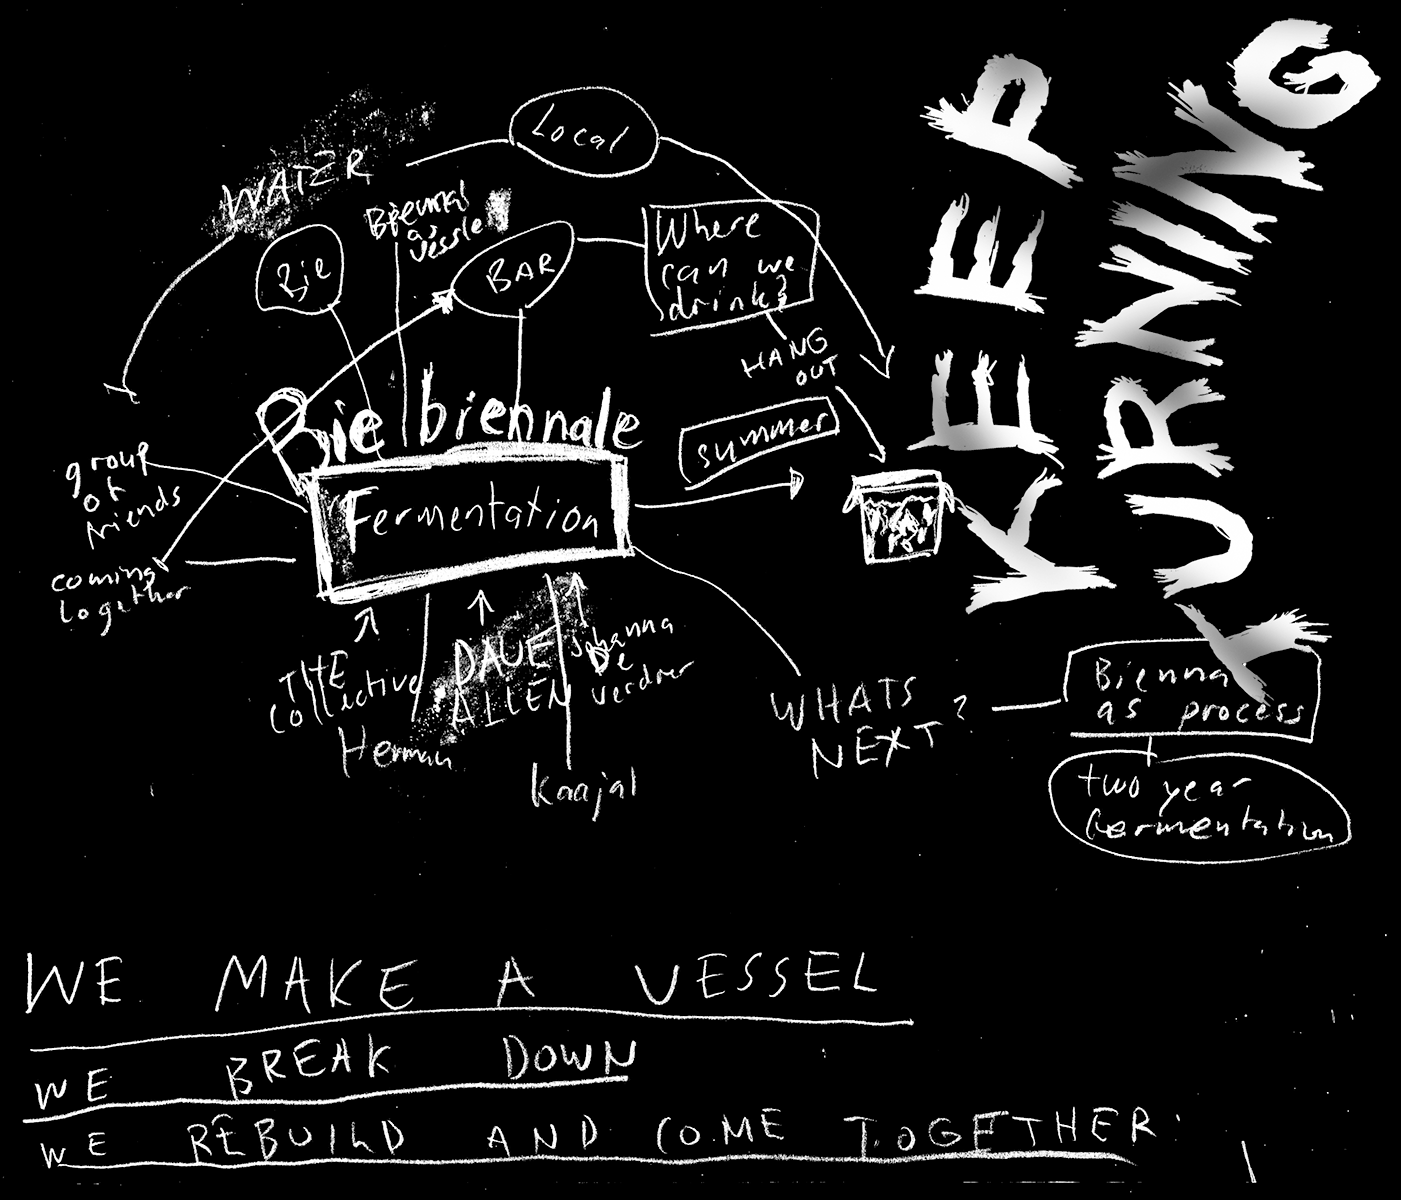 Local
WATER
Biennal
as
vessle
Bie
BAR
Where
can we
drink?
HANG
OUT
KEEP
TURNING
Bie biennale
summer
group
of
friends
Fermentation
coming
together
THE
collective
DAVE
ALLEN
Johanna
De
verdner
Herman
Kaajal
WHATS
NEXT?
Bienna
as process
two year
fermentation
WE MAKE A VESSEL
WE BREAK DOWN
WE REBUILD AND COME TOGETHER